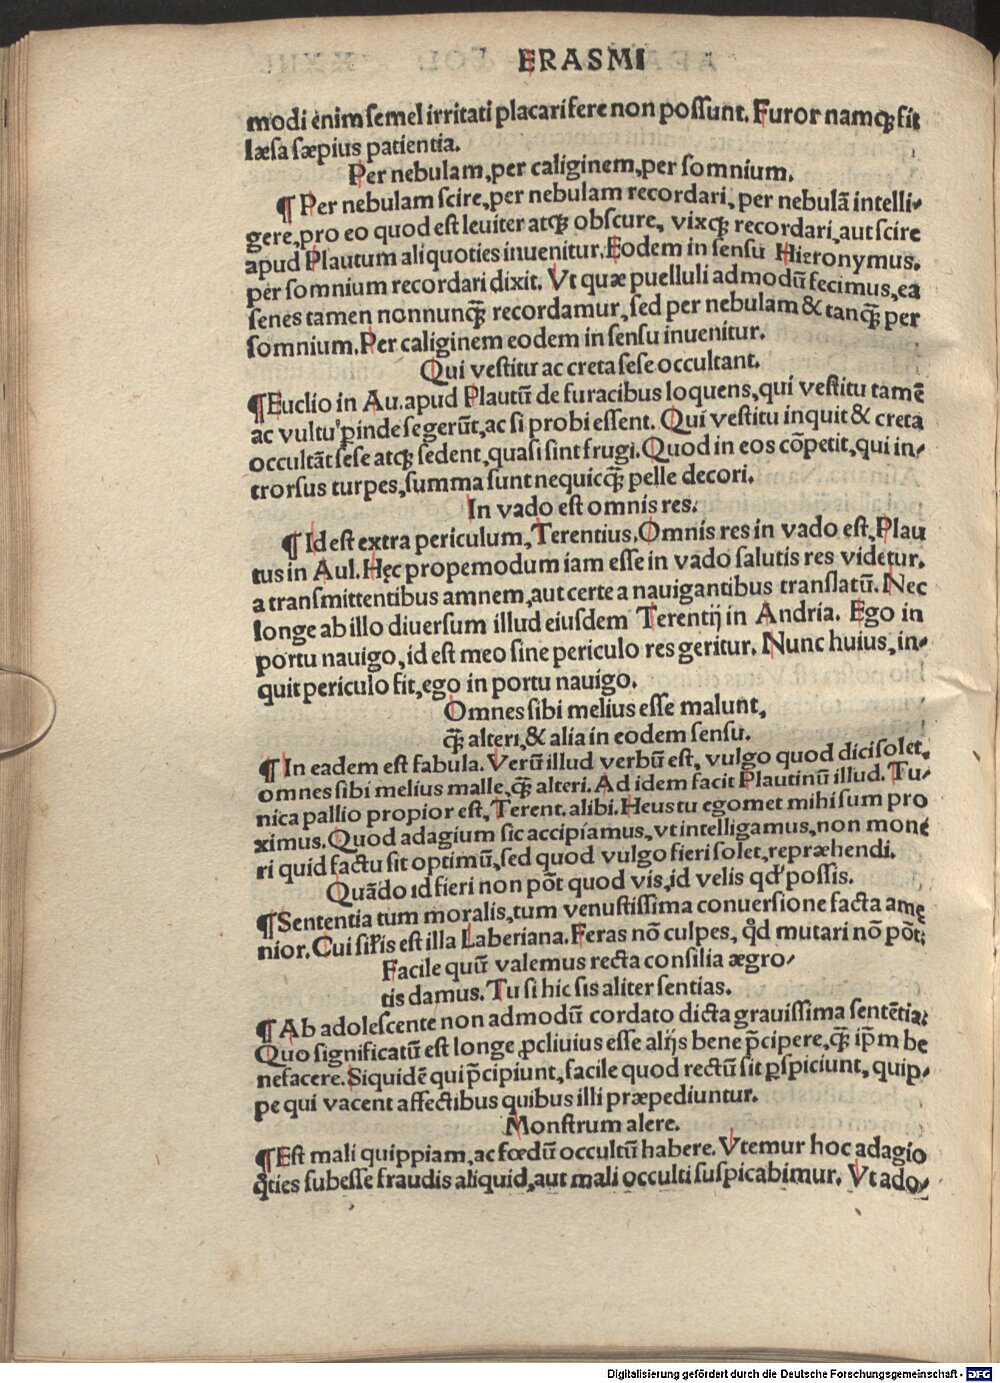 ERASMI
modi enim semel irritati placari fere non possunt. Furor namqꝫ fit
læsa sæpius patientia.
Per nebulam, per caliginem, per somnium.
¶ Per nebulam scire, per nebulam recordari, per nebulā intelli-
gere, pro eo quod est leuiter atqꝫ obscure, vixqꝫ recordari, aut scire
apud Plautum aliquoties inuenitur. Eodem in sensu Hieronymus.
per somnium recordari dixit. Vt quæ puelluli admodū fecimus, ea
senes tamen nonnunqꝫ̄ recordamur, sed per nebulam & tanqꝫ̄ per
somnium. Per caliginem eodem in sensu inuenitur.
Qui vestitu ac creta sese occultant.
¶ Euclio in Au. apud Plautū de furacibus loquens, qui vestitu tamē
ac vultu ꝓinde se gerūt, ac si probi essent. Qui vestitu inquit & creta
occultāt sese atqꝫ sedent, quasi sint frugi. Quod in eos cōpetit, qui in-
trorsus turpes, summa sunt nequicqꝫ̄ pelle decori.
In vado est omnis res.
¶ Id est extra periculum, Terentius. Omnis res in vado est, Plau
tus in Aul. Hęc propemodum iam esse in vado salutis res videtur.
a transmittentibus amnem, aut certe a nauigantibus translatū. Nec
longe ab illo diuersum illud eiusdem Terentij in Andria. Ego in
portu nauigo, id est meo sine periculo res geritur. Nunc huius, in-
quit periculo fit, ego in portu nauigo.
Omnes sibi melius esse malunt,
qꝫ̄ alteri, & alia in eodem sensu.
¶ In eadem est fabula. Verū illud verbū est, vulgo quod dici solet.
omnes sibi melius malle, qꝫ̄ alteri. Ad idem facit Plautinū illud. Tu-
nica pallio propior est, Terent. alibi. Heus tu egomet mihi sum pro
ximus. Quod adagium sic accipiamus, vt intelligamus, non mone
ri quid factu sit optimū, sed quod vulgo fieri solet, repræhendi.
Quādo id fieri non pōt quod vis, id velis qd' possis.
¶ Sententia tum moralis, tum venustissima conuersione facta amę
nior. Cui sil'is est illa Laberiana. Feras nō culpes, qd̊ mutari nō pōt;
Facile quū valemus recta consilia ægro-
tis damus. Tu si hic sis aliter sentias.
¶ Ab adolescente non admodū cordato dicta grauissima sentētia:
Quo significatū est longe ꝓcliuius esse alijs bene p̄cipere, qꝫ̄ ip̄m be
nefacere. Siquidē qui p̄cipiunt, facile quod rectū sit ꝑspiciunt, quip-
pe qui vacent affectibus quibus illi præpediuntur.
Monstrum alere.
¶ Est mali quippiam, ac fœdū occultū habere. Vtemur hoc adagio
q̊ties subesse fraudis aliquid, aut mali occulti suspicabimur. Vt ado-
Digitalisierung gefördert durch die Deutsche Forschungsgemeinschaft - DFG